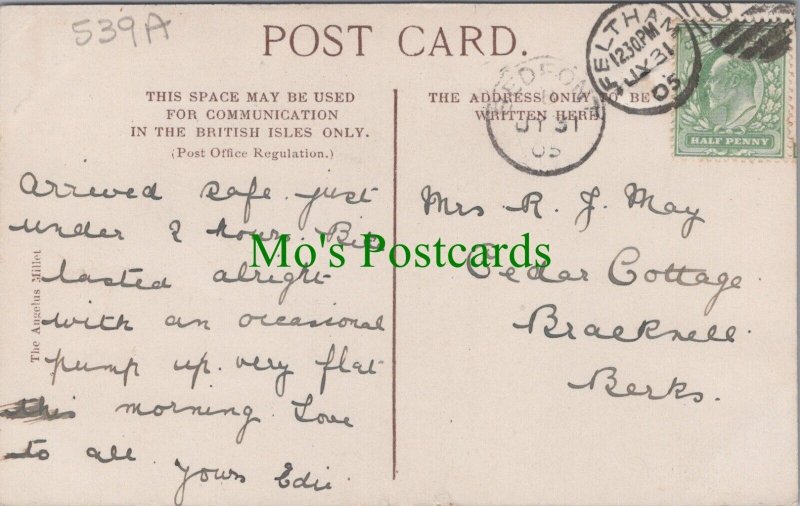 539A
POST CARD.
THIS SPACE MAY BE USED
FOR COMMUNICATION
IN THE BRITISH ISLES ONLY.
(Post Office Regulation.)
THE ADDRESS ONLY TO BE
WRITTEN HERE
BEDFONT
JY 31
05
FELTHAM
12 30PM
JY 31
05
HALF PENNY
Arrived safe just
under 2 hours.
lasted alright
with an occasional
pump up. very flat
this morning Love
to all
yours Edie
The Angelus Millet
Mo's Postcards
Mrs R. J. May
Cedar Cottage
Bracknell
Berks.